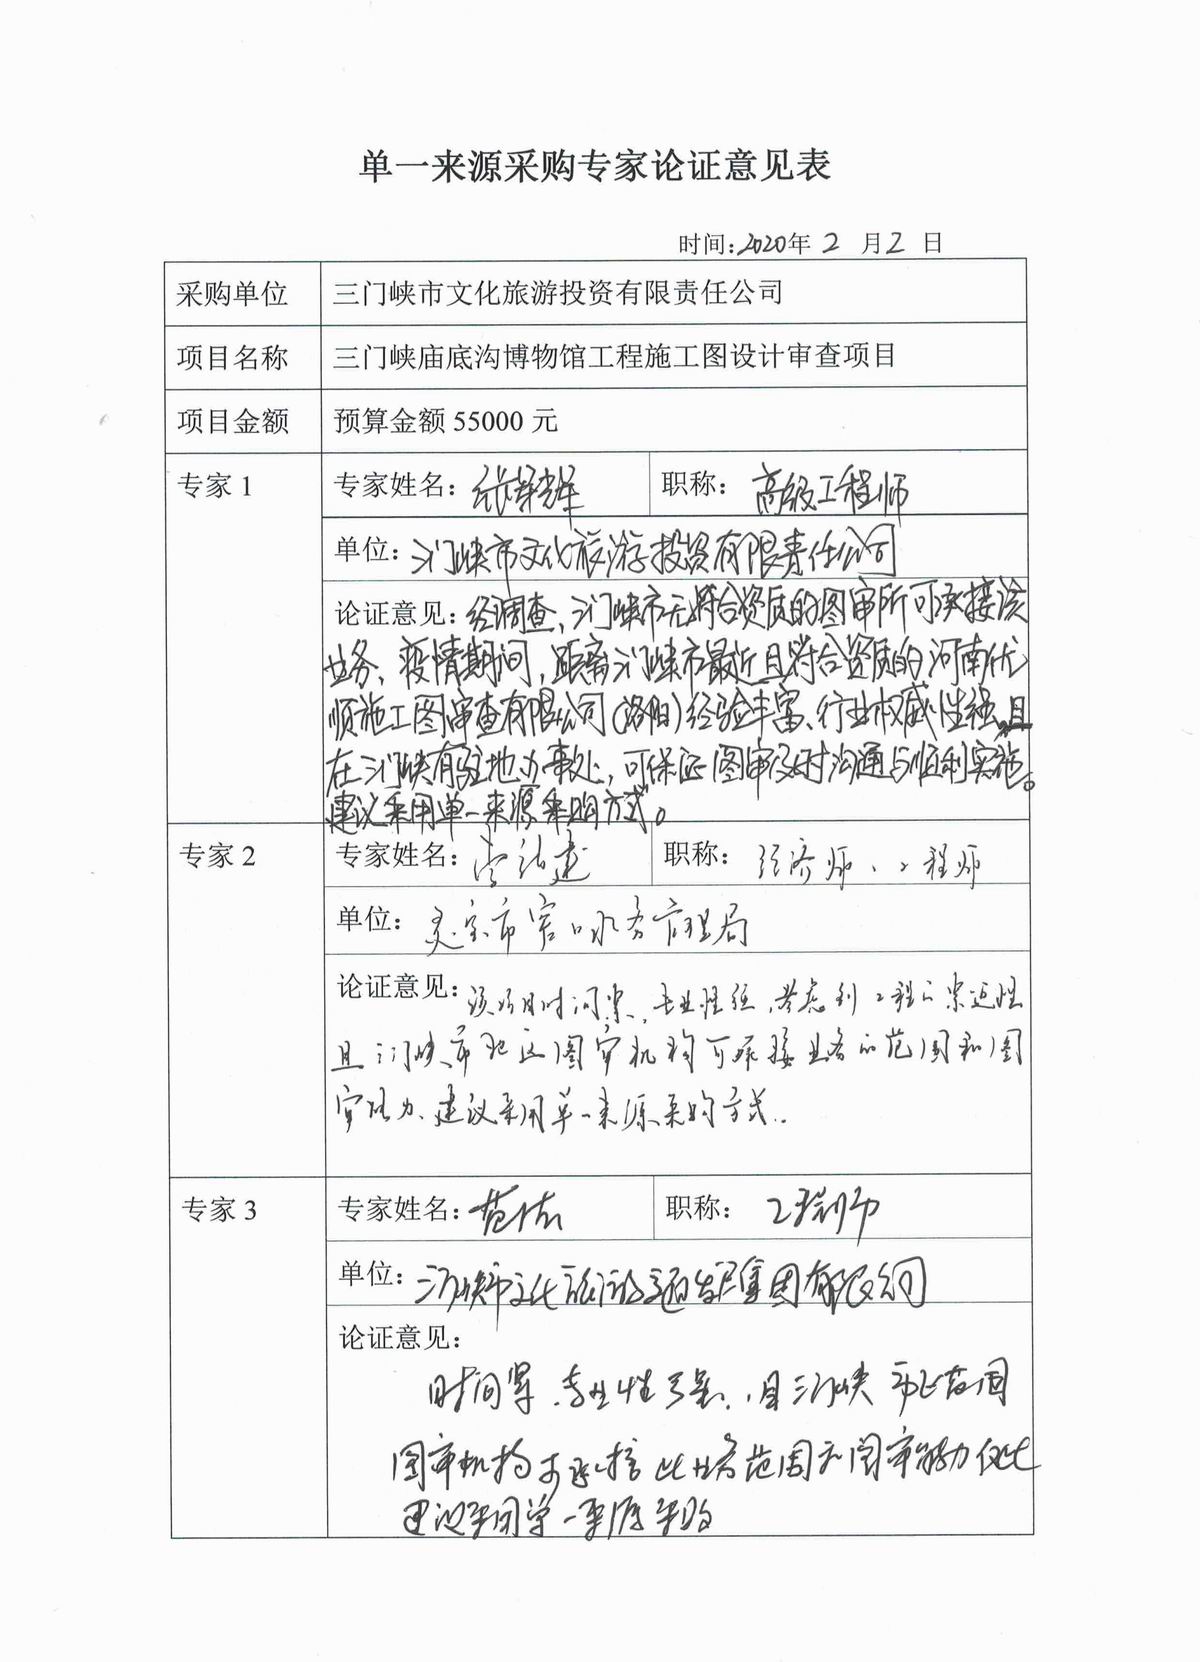 单一来源采购专家论证意见表
时间:2020年 2 月 2 日
采购单位 三门峡市文化旅游投资有限责任公司
项目名称 三门峡庙底沟博物馆工程施工图设计审查项目
项目金额 预算金额 55000 元
专家 1 专家姓名: 职称: 高级工程师
单位: 三门峡市文化旅游投资有限责任公司
论证意见: 经调查、三门峡市无符合资质的图审所可承接该
业务、疫情期间,距离三门峡市最近且符合资质的河南优
顺施工图审查有限公司(洛阳)经验丰富、行业权威性强,且
在三门峡有驻地办事处,可保证图审及时沟通与顺利实施。
建议采用单一来源采购方式。
专家 2 专家姓名: 职称: 经济师、工程师
单位: 灵宝市窄口水务管理局
论证意见: 该项目时间紧,专业性强,考虑到工程的紧迫性
且三门峡市地区图审机构可承接业务的范围和图
审能力、建议采用单一来源采购方式.
专家 3 专家姓名: 职称: 工程师
单位: 三门峡市文化旅游发展集团有限公司
论证意见:
时间紧、专业性强,且三门峡市范围
图审机构承接此业务范围和图审能力
建议采用单一来源采购